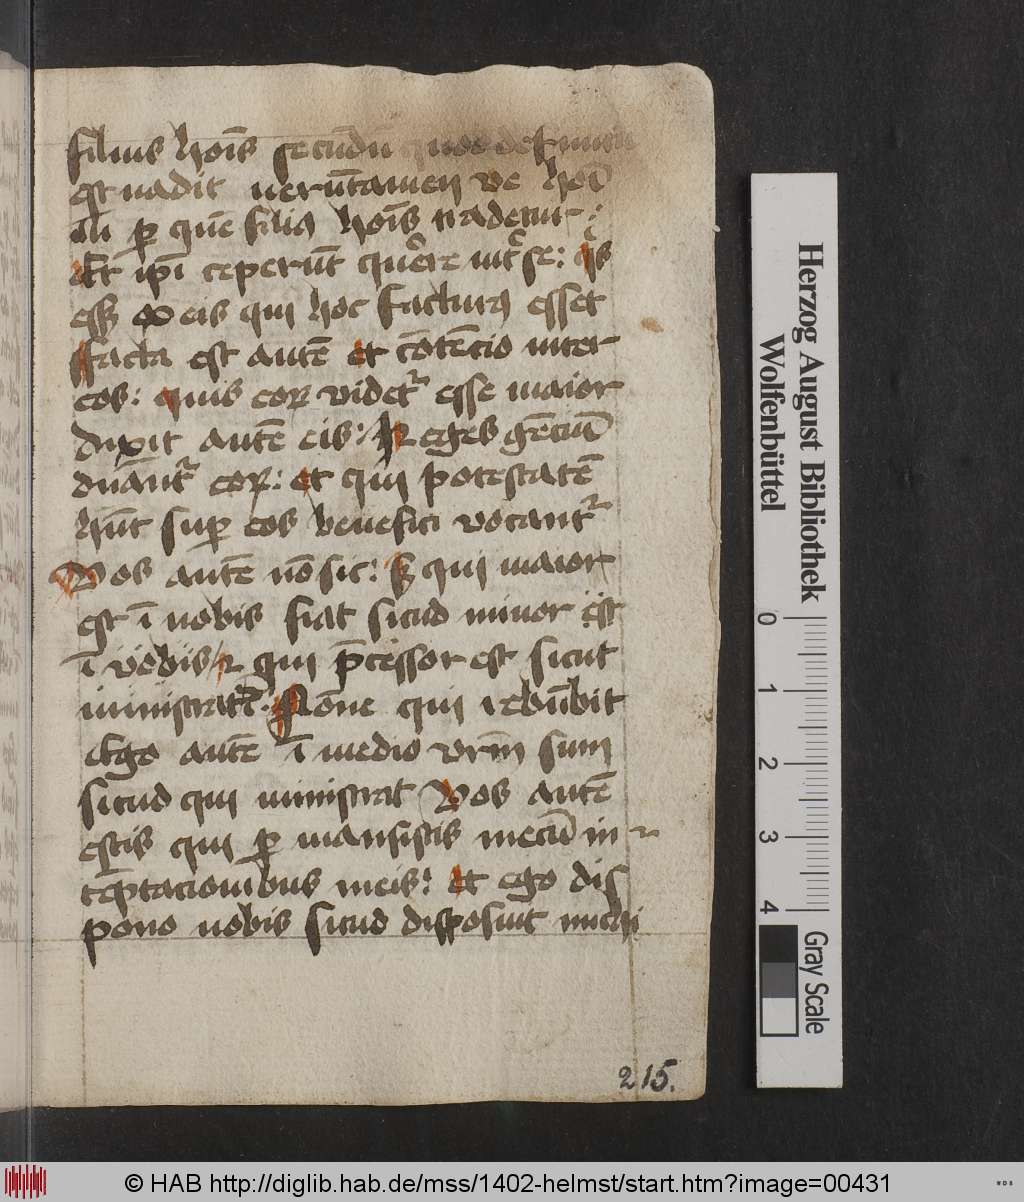 filius hoīs secūdū quod defīnitū
est uadit uerūtamen ve hoī
illi ꝑ quē filiꝰ hoīs tradetur:
Et ip̄i ceperūt quere int̄ se: qͥs
essꝫ ex eis qui hoc facturꝰ esset
ffacta est autē et cōtēcio inter
eos: quis eoꝝ videtᷣ esse maior
dixit autē eis: Reges gēciū
dn̄antᷣ eoꝝ: et qui potestatē
hn̄t suꝑ eos benefici vocantᷣ
Vos autē nō sic: sꝫ qui maior
est ī uobis fiat sicud minor est
ī vobis et qui p̄cessor est sicut
ministratᷣ: Nōne qui recūbit
Ego autē ī medio vrm̄ sum
sicud qui ministrat Vos autē
estis qui ꝑ mansistis mecū in
tēptacionibus meis: et ego dis
pono uobis sicud disposuit michi
215.
Herzog August Bibliothek
Wolfenbüttel
0 1 2 3 4
Gray Scale
© HAB http://diglib.hab.de/mss/1402-helmst/start.htm?image=00431